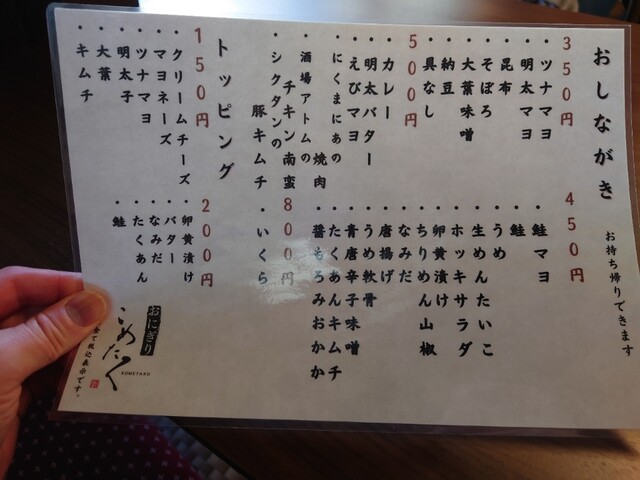 おしながき
お持ち帰りできます
350円
・ツナマヨ
・明太マヨ
・昆布
・そぼろ
・大葉味噌
・納豆
・具なし
450円
・鮭マヨ
・鮭
・うめ
・生めんたいこ
・ホッキサラダ
・卵黄漬け
・ちりめん山椒
・なみだ
・唐揚げ
・うめ軟骨
・青唐辛子味噌
・たくあんキムチ
・醤もろみおかか
500円
・カレー
・明太バター
・えびマヨ
・にくまにあの
焼肉
・酒場アトムの
チキン南蛮
・シクタンの
豚キムチ
800円
・いくら
トッピング
150円
・クリームチーズ
・マヨネーズ
・ツナマヨ
・明太子
・大葉
・キムチ
200円
・卵黄漬け
・バター
・なみだ
・たくあん
・鮭
おにぎり
こめたく
KOMETAKU
全て税込表示です。